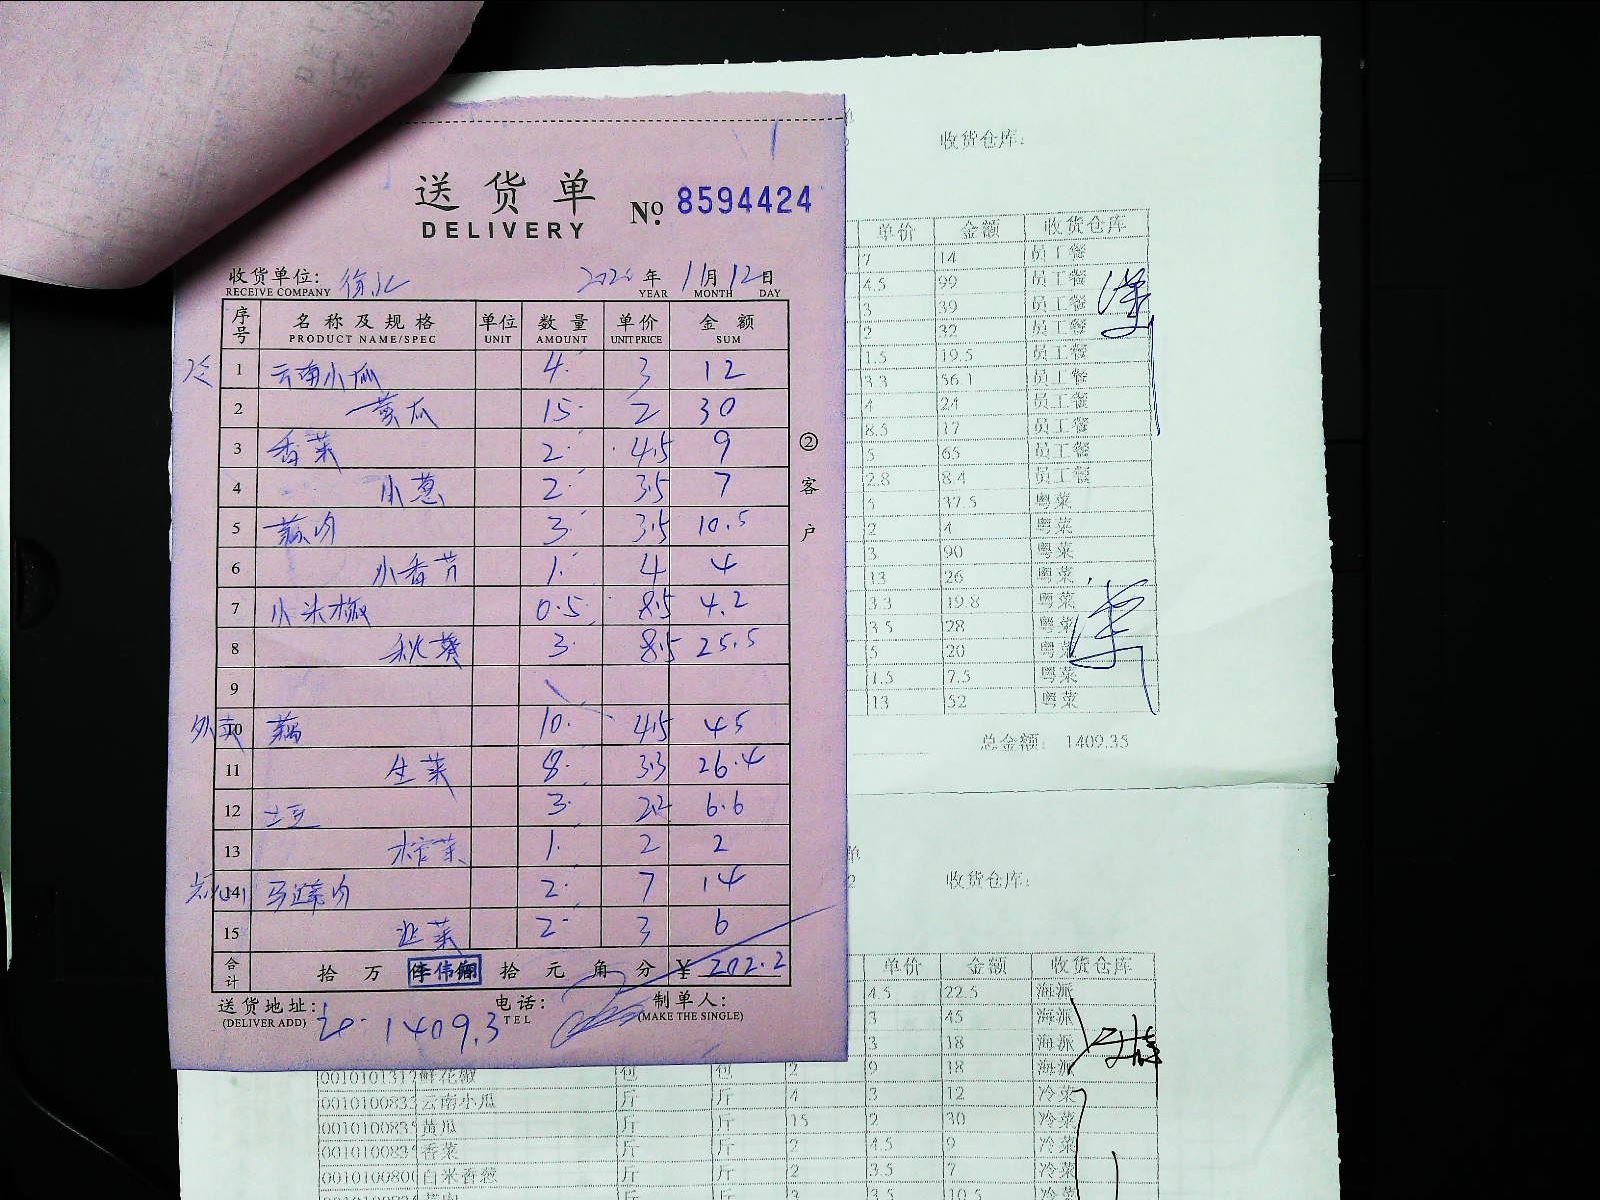 送货单
DELIVERY
No. 8594424
收货单位:
RECEIVE COMPANY
年 11月12日
YEAR MONTH DAY
序号 名称及规格 单位 数量 单价 金额
PRODUCT NAME/SPEC UNIT AMOUNT UNIT PRICE SUM
冷 1 云南小瓜 4. 3 12
2 黄瓜 15. 2 30
3 香菜 2. 4.5 9
4 小葱 2. 3.5 7
5 蒜肉 3. 3.5 10.5
6 小香芹 1. 4 4
7 小米椒 0.5. 8.5 4.2
8 秋葵 3. 8.5 25.5
9
外卖 10 藕 10. 4.5 45
11 生菜 8. 3.3 26.4
12 土豆 3. 2.2 6.6
13 榨菜 1. 2 2
14 马蹄肉 2. 7 14
15 韭菜 2. 3 6
合计 拾 万 李伟 拾 元 角 分 ¥ 202.2
送货地址: 电话: 制单人:
(DELIVER ADD) TEL (MAKE THE SINGLE)
1409.3
②客户
收货仓库:
单价 金额 收货仓库
7 14 员工餐
4.5 99 员工餐
3 39 员工餐
2 32 员工餐
1.5 19.5 员工餐
3.3 56.1 员工餐
4 24 员工餐
8.5 17 员工餐
5 65 员工餐
2.8 8.4 员工餐
37.5 粤菜
2 4 粤菜
3 90 粤菜
13 26 粤菜
3.3 19.8 粤菜
3.5 28 粤菜
5 20 粤菜
1.5 7.5 粤菜
13 52 粤菜
总金额: 1409.35
单
收货仓库:
单价 金额 收货仓库
4.5 22.5 海派
3 45 海派
3 18 海派
0010101312 鲜花椒 包 包 2 9 18 海派
0010100833 云南小瓜 斤 斤 4 3 12 冷菜
0010100835 黄瓜 斤 斤 15 2 30 冷菜
001010083 香菜 斤 斤 2 4.5 9 冷菜
0010100800 白米香葱 斤 斤 2 3.5 7 冷菜
斤 斤 3 3.5 10.5 冷菜